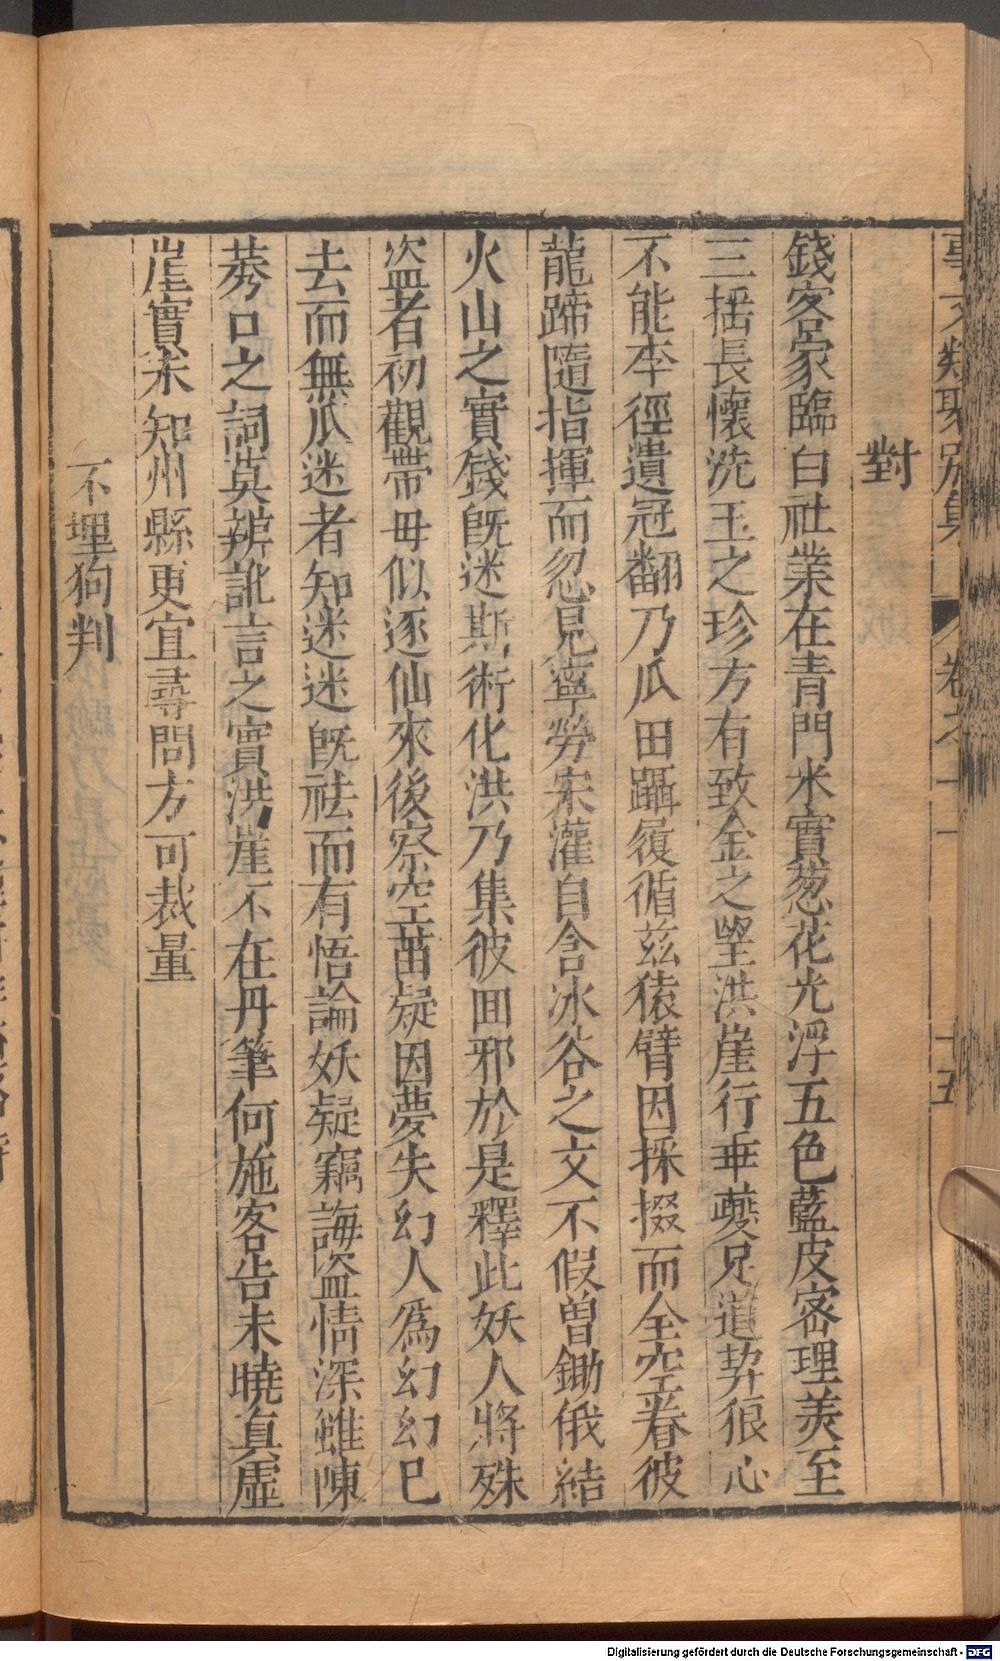 事文類聚別集 卷之十一 十五
對
錢客家臨白社業在青門水實葱花光浮五色藍皮密理羙至
三揺長懷洗玉之珍方有致金之望洪崖行乖蘷足道契狠心
不能李徑遺冠翻乃瓜田躡履循茲猿臂因採掇而全空眷彼
龍蹄隨指揮而忽見寧勞宋灌自含冰谷之文不假曽鋤俄結
火山之實錢旣迷斯術化洪乃集彼囬邪於是釋此妖人將殊
盗者初觀帶毋似逐仙來後察空苗疑因夢失幻人爲幻幻巳
去而無瓜迷者知迷迷旣祛而有悟論妖疑竊誨盗情深雖陳
莠口之詞莫辨訛言之實洪崖不在丹筆何施客告未曉真虛
崖實未知州縣更宜尋問方可裁量
不埋狗判
Digitalisierung gefördert durch die Deutsche Forschungsgemeinschaft - DFG